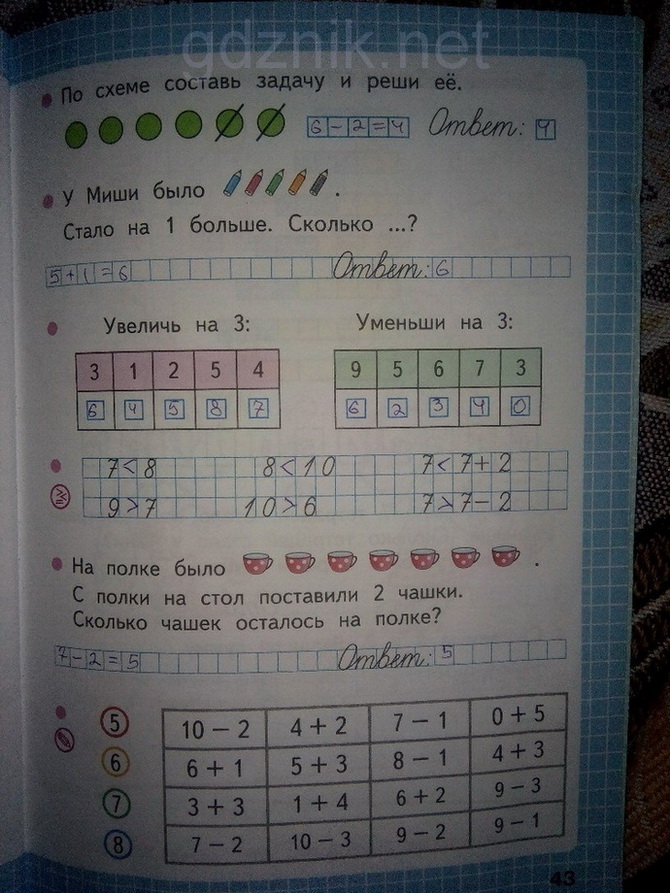 gdznik.net
По схеме составь задачу и реши её.
6-2=4 Ответ: 4
У Миши было .
Стало на 1 больше. Сколько ...?
5+1=6 Ответ: 6
Увеличь на 3: Уменьши на 3:
3 1 2 5 4 9 5 6 7 3
6 4 5 8 7 6 2 3 4 0
7<8 8<10 7<7+2
9>7 10>6 7>7-2
На полке было .
С полки на стол поставили 2 чашки.
Сколько чашек осталось на полке?
7-2=5 Ответ: 5
5 10 − 2 4 + 2 7 − 1 0 + 5
6 6 + 1 5 + 3 8 − 1 4 + 3
7 3 + 3 1 + 4 6 + 2 9 − 3
8 7 − 2 10 − 3 9 − 2 9 − 1
43